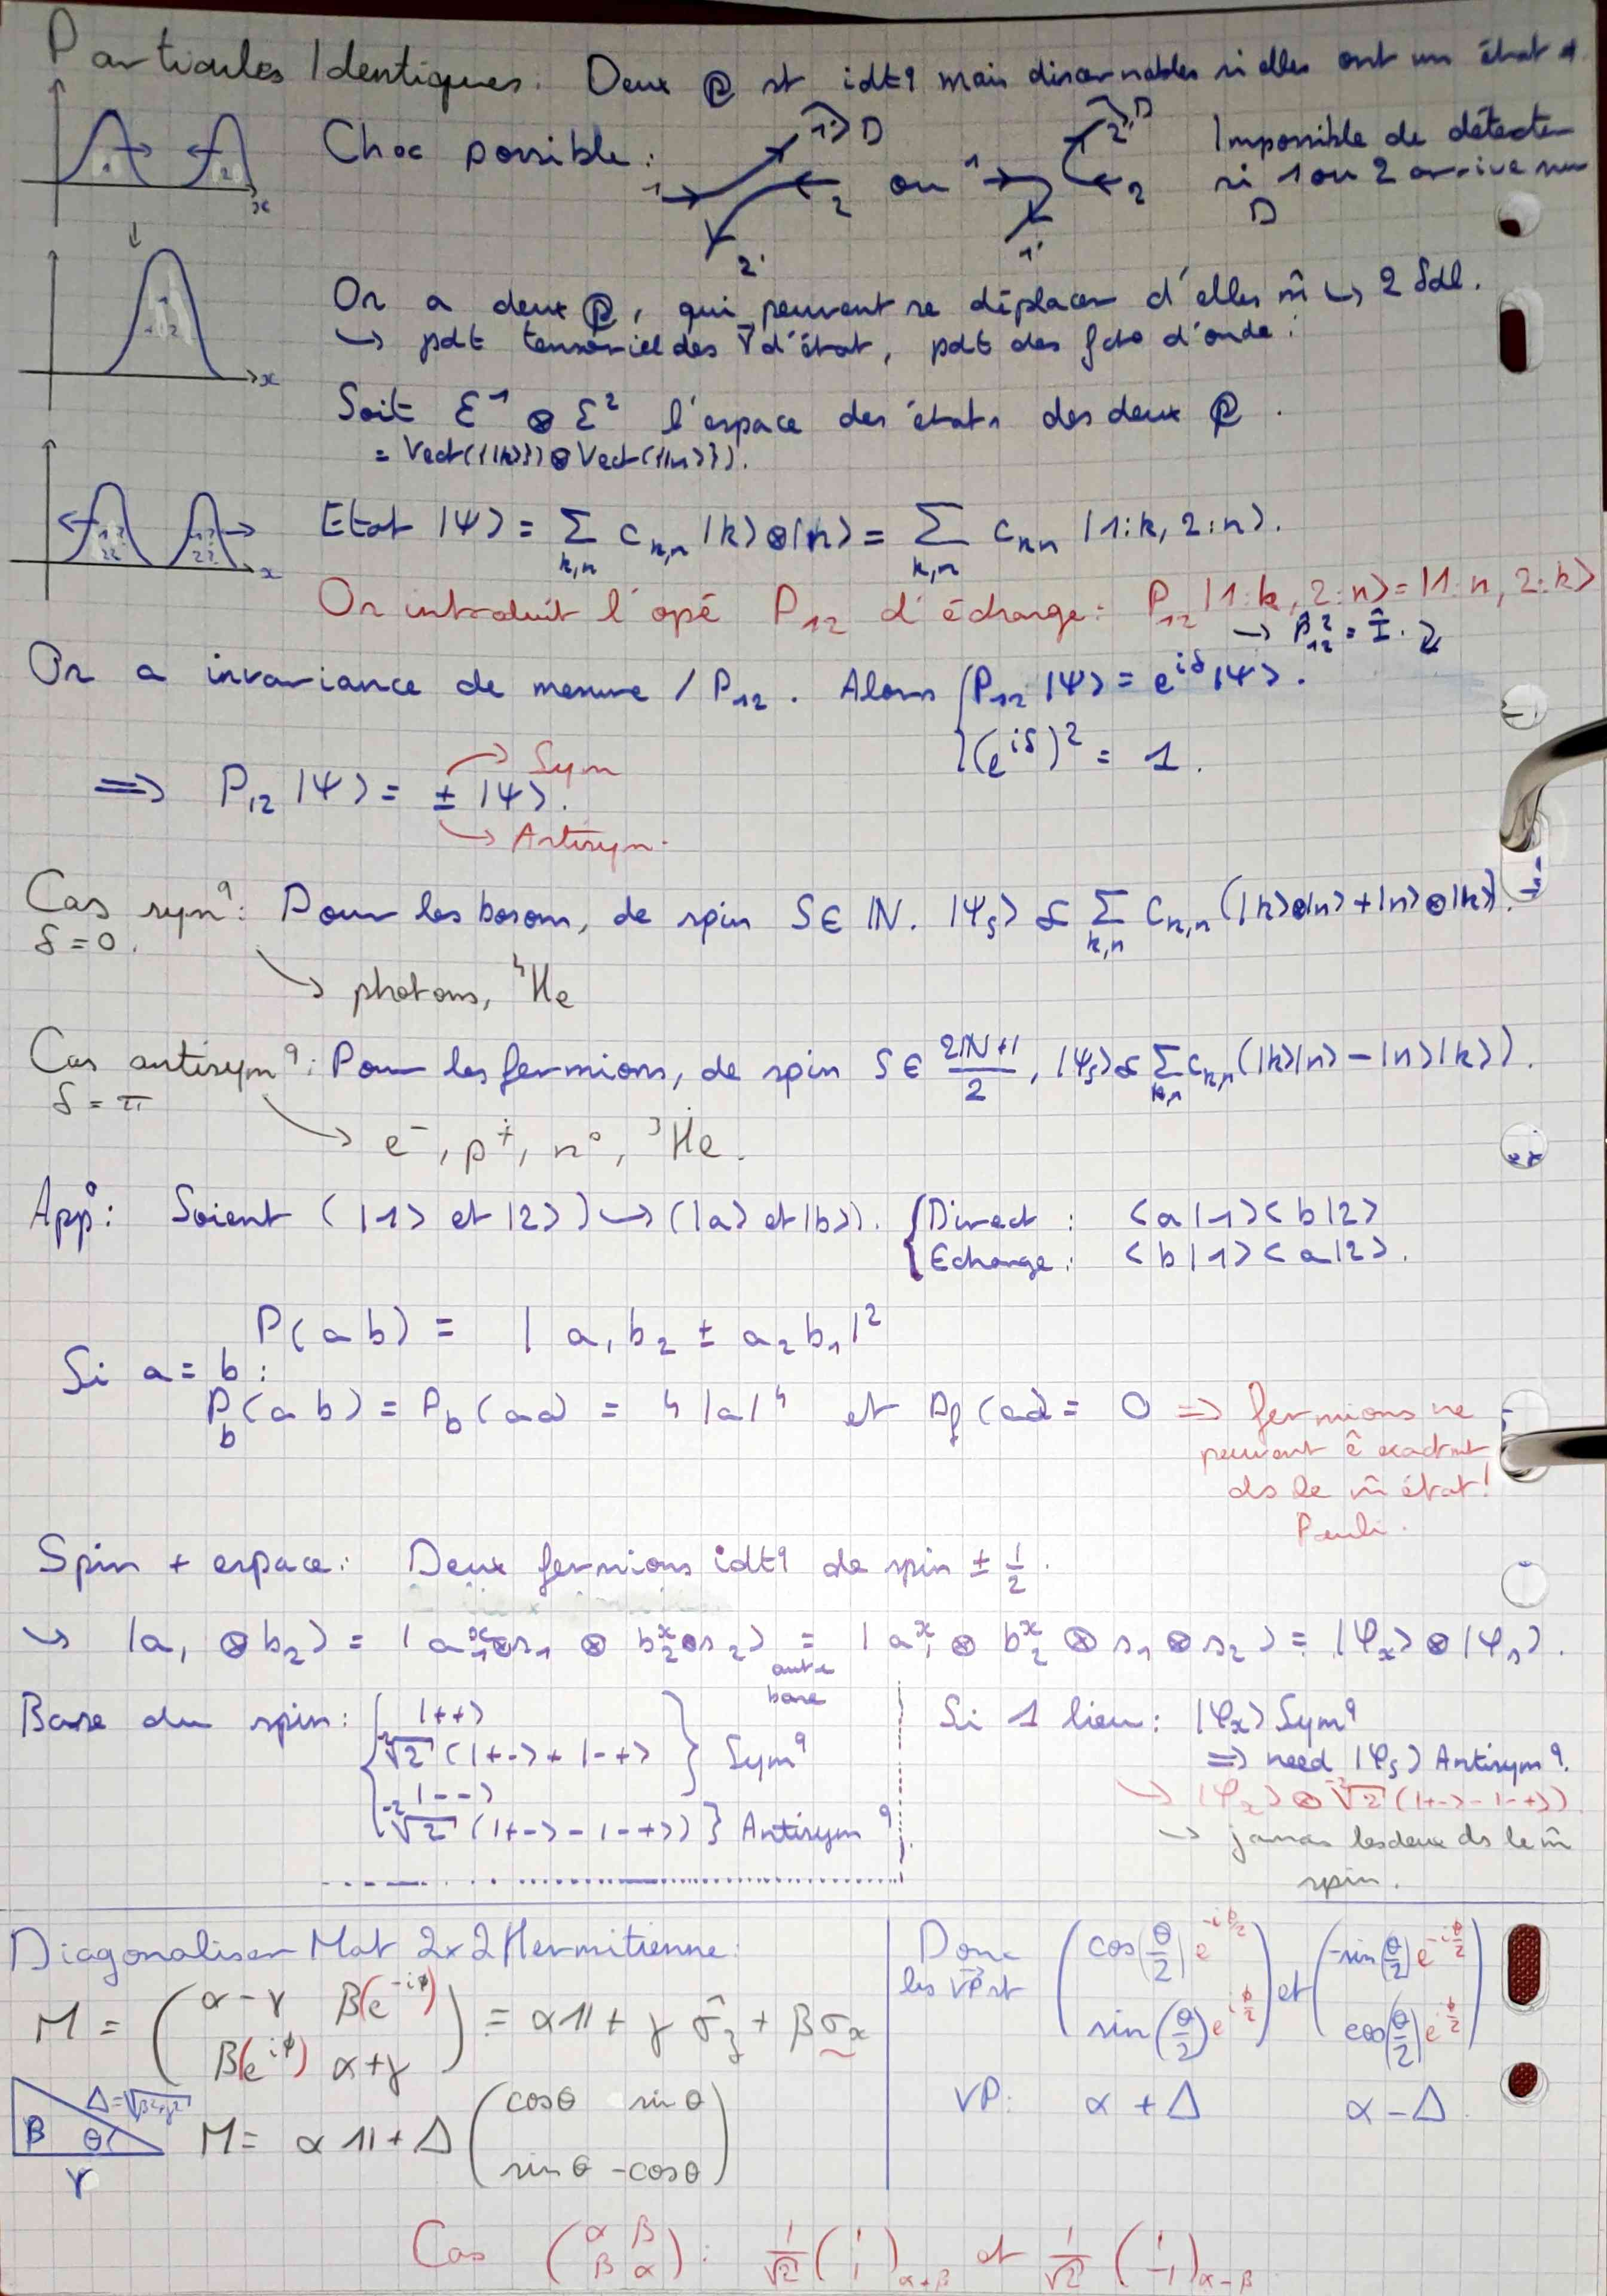 Particules Identiques. Deux ⓟ st idtq mais discernables si elles ont un état ≠.
Choc possible : 1 2 1' D 2' ou 1 2 2' D 1' Impossible de détecter
si 1 ou 2 arrive sur
D
1 2 x
On a deux ⓟ, qui peuvent se déplacer d'elles m̂ ↳ 2 ddl.
↳ pdt tensoriel des V⃗ d'état, pdt des fcto d'onde :
1 2 x
Soit Ɛ¹ ⊗ Ɛ² l'espace des états des deux ⓟ.
= Vect({|k⟩}) ⊗ Vect({|n⟩}).
Etat |Ψ⟩ = Σ_{k,n} c_{k,n} |k⟩⊗|n⟩ = Σ_{k,n} c_{kn} |1:k, 2:n⟩.
1? 2? 1? 2? x
On introduit l'opé P₁₂ d'échange : P₁₂ |1:k, 2:n⟩ = |1:n, 2:k⟩
→ P̂₁₂² = Î.
On a invariance de mesure / P₁₂. Alors { P₁₂ |Ψ⟩ = e^{iδ} |Ψ⟩.
(e^{iδ})² = 1.
⟹ P₁₂ |Ψ⟩ = ± |Ψ⟩.
→ Sym
→ Antisym.
Cas symq : Pour les bosons, de spin S ∈ ℕ. |Ψ_S⟩ ∝ Σ_{k,n} c_{k,n} (|k⟩⊗|n⟩ + |n⟩⊗|k⟩).
δ = 0.
→ photons, ⁴He
Cas antisymq : Pour les fermions, de spin S ∈ (2ℕ+1)/2, |Ψ_S⟩ ∝ Σ_{k,n} c_{k,n} (|k⟩|n⟩ − |n⟩|k⟩).
δ = π
→ e⁻, p⁺, n⁰, ³He.
App° : Soient (|1⟩ et |2⟩) ↦ (|a⟩ et |b⟩). { Direct : ⟨a|1⟩⟨b|2⟩
Echange : ⟨b|1⟩⟨a|2⟩.
P(ab) = |a₁b₂ ± a₂b₁|²
Si a = b :
P_b(ab) = P_b(aa) = 4|a|⁴ et P_f(aa) = 0 ⟹ fermions ne
peuvent ê exactmt
ds le m̂ état !
Pauli.
Spin + espace : Deux fermions idtq de spin ± 1/2.
↳ |a₁ ⊗ b₂⟩ = |a₁ˣ⊗s₁ ⊗ b₂ˣ⊗s₂⟩ = |a₁ˣ ⊗ b₂ˣ ⊗ s₁ ⊗ s₂⟩ = |φ_x⟩ ⊗ |φ_s⟩.
autre
base
Base du spin : { |++⟩
⁻²√2 (|+−⟩ + |−+⟩ } Symq
|−−⟩
⁻²√2 (|+−⟩ − |−+⟩) } Antisymq.
Si 1 lieu : |φ_x⟩ Symq
⟹ need |φ_s⟩ Antisymq.
↳ |φ_x⟩ ⊗ ⁻²√2 (|+−⟩ − |−+⟩)
→ jamais les deux ds le m̂
spin.
Diagonaliser Mat 2x2 Hermitienne :
M = ( α−γ β(e^{−iϕ}) ; β(e^{iϕ}) α+γ ) = α 1l + γ σ̂_z + β σ_x
Δ = √(β²+γ²) β θ γ
M = α 1l + Δ ( cosθ sinθ ; sinθ −cosθ )
Donc
les V⃗P st ( cos(θ/2) e^{−iϕ/2} ; sin(θ/2) e^{iϕ/2} ) et ( −sin(θ/2) e^{−iϕ/2} ; cos(θ/2) e^{iϕ/2} )
VP : α + Δ α − Δ.
Cas ( α β ; β α ) : 1/√2 ( 1 ; 1 )_{α+β} et 1/√2 ( 1 ; −1 )_{α−β}